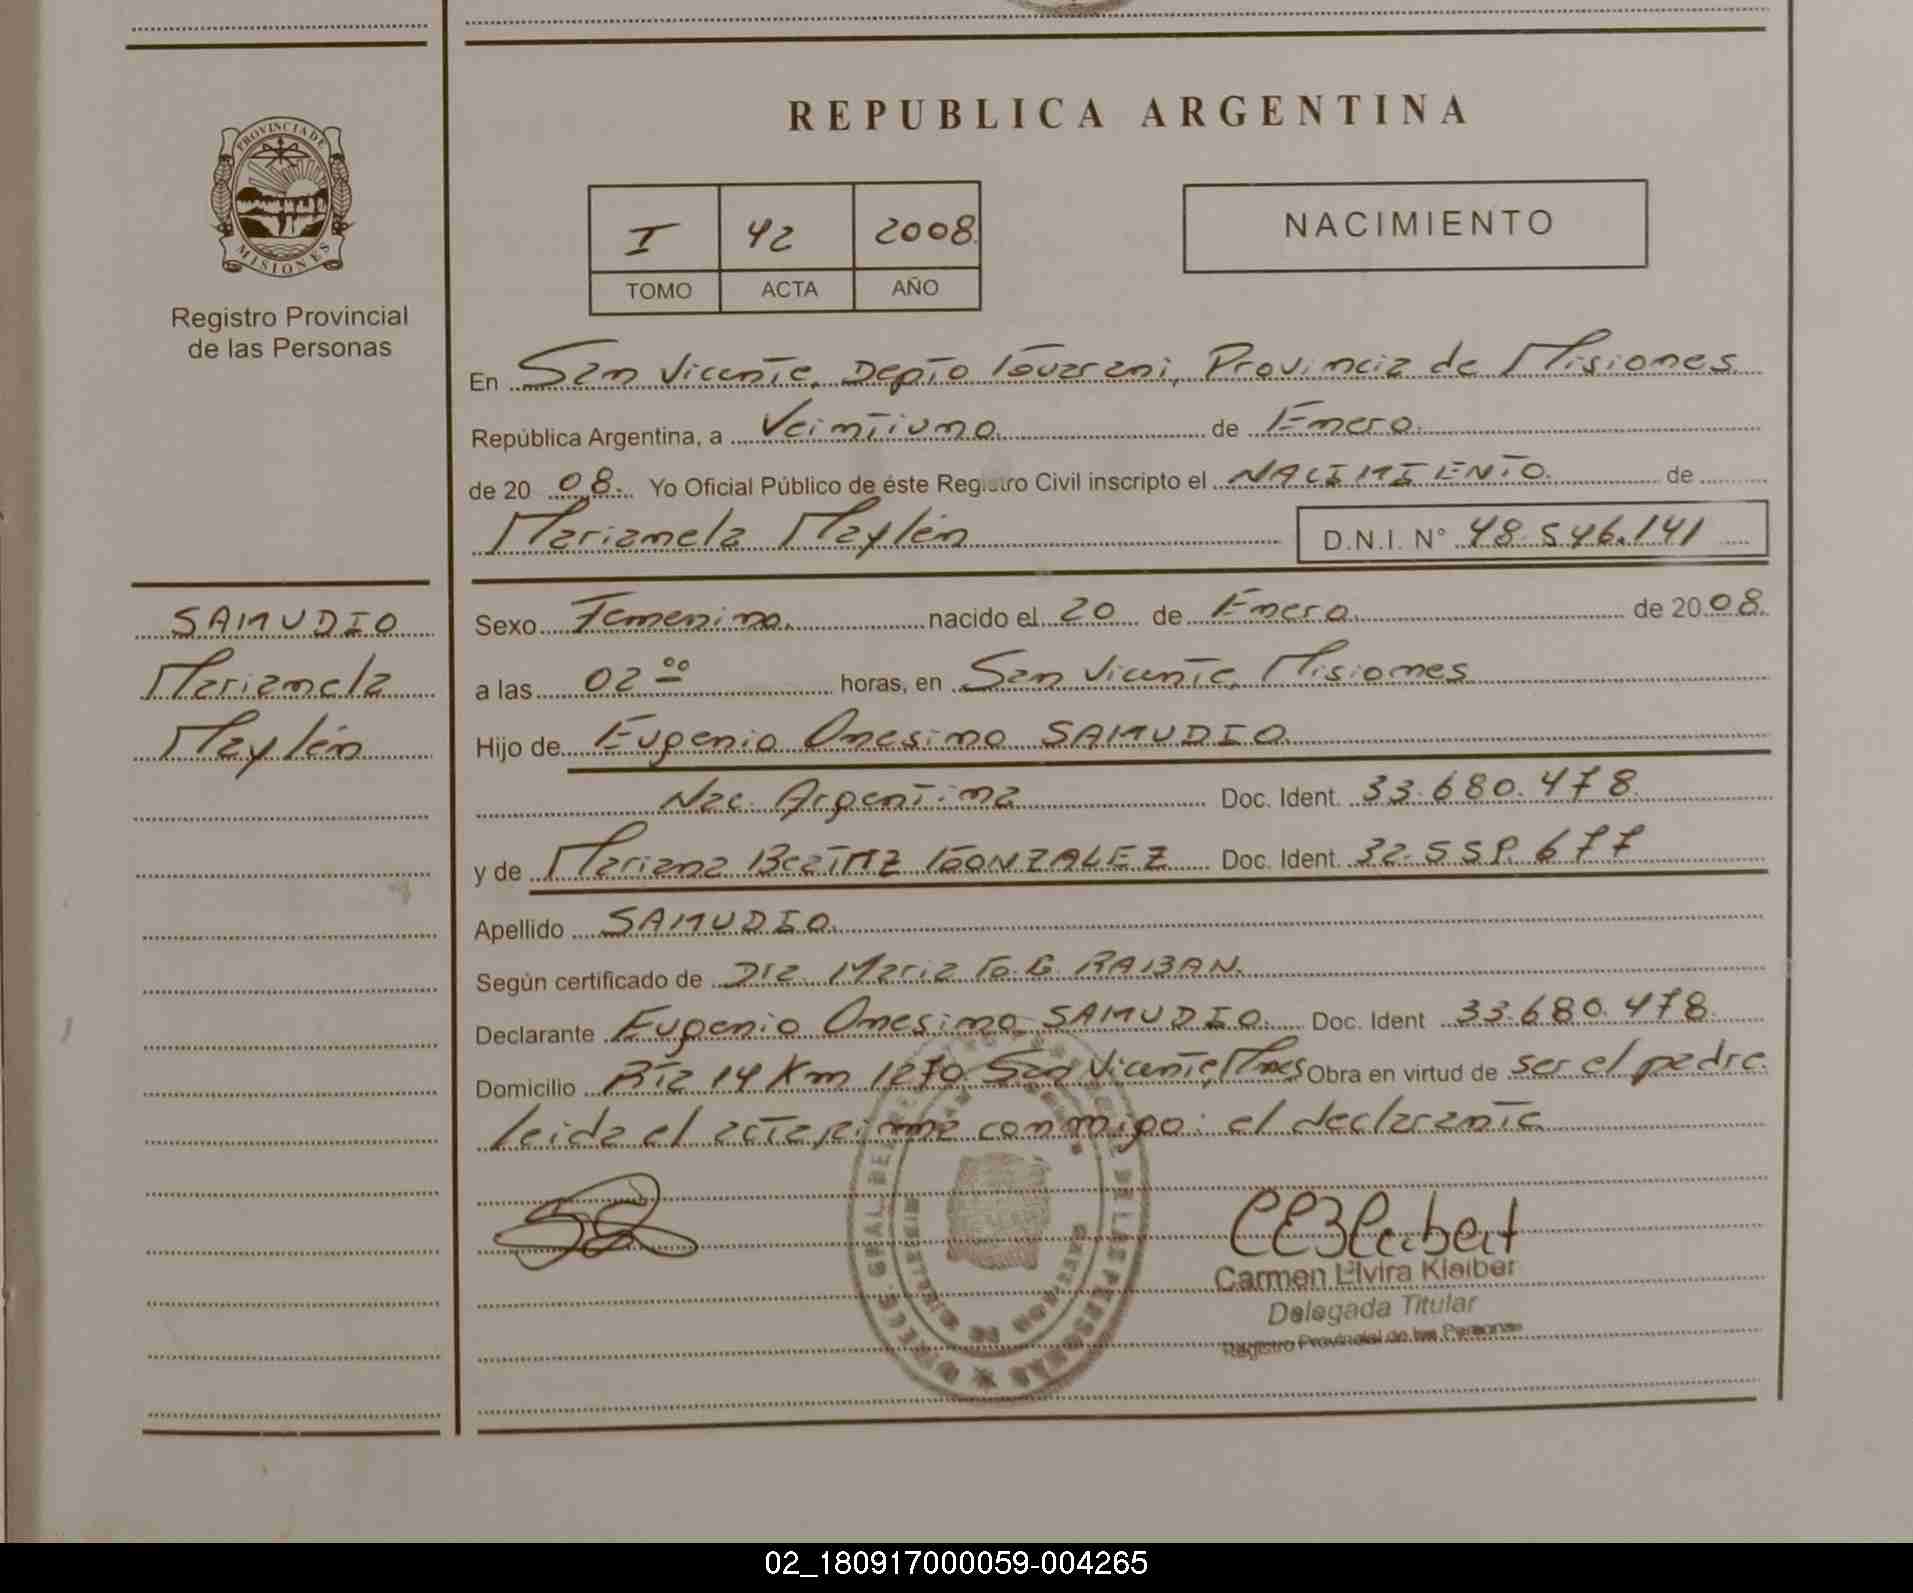 REPUBLICA ARGENTINA
PROVINCIA DE
MISIONES
Registro Provincial
de las Personas
I 42 2008
TOMO ACTA AÑO
NACIMIENTO
En San Vicente, Depto Guarani, Provincia de Misiones
República Argentina, a Veintiuno de Enero
de 20 08. Yo Oficial Público de éste Registro Civil inscripto el NACIMIENTO de
Marianela Maylén D.N.I. N° 48.546.141
SAMUDIO
Marianela
Maylén
Sexo Femenino. nacido el 20 de Enero de 20 08.
a las 02 00 horas, en San Vicente, Misiones
Hijo de Eugenio Onesimo SAMUDIO
Nac. Argentina Doc. Ident. 33.680.478
y de Mariana Beatriz GONZALEZ Doc. Ident. 32.559.677
Apellido SAMUDIO.
Según certificado de Dra. Maria G. G. RABAN.
Declarante Eugenio Onesimo SAMUDIO. Doc. Ident 33.680.478
Domicilio Rta 14 Km 1270 San Vicente, Mnes Obra en virtud de ser el padre.
Leida el acta, firma conmigo: el declarante
Carmen Elvira Kleiber
Delegada Titular
Registro Provincial de las Personas
02_180917000059-004265